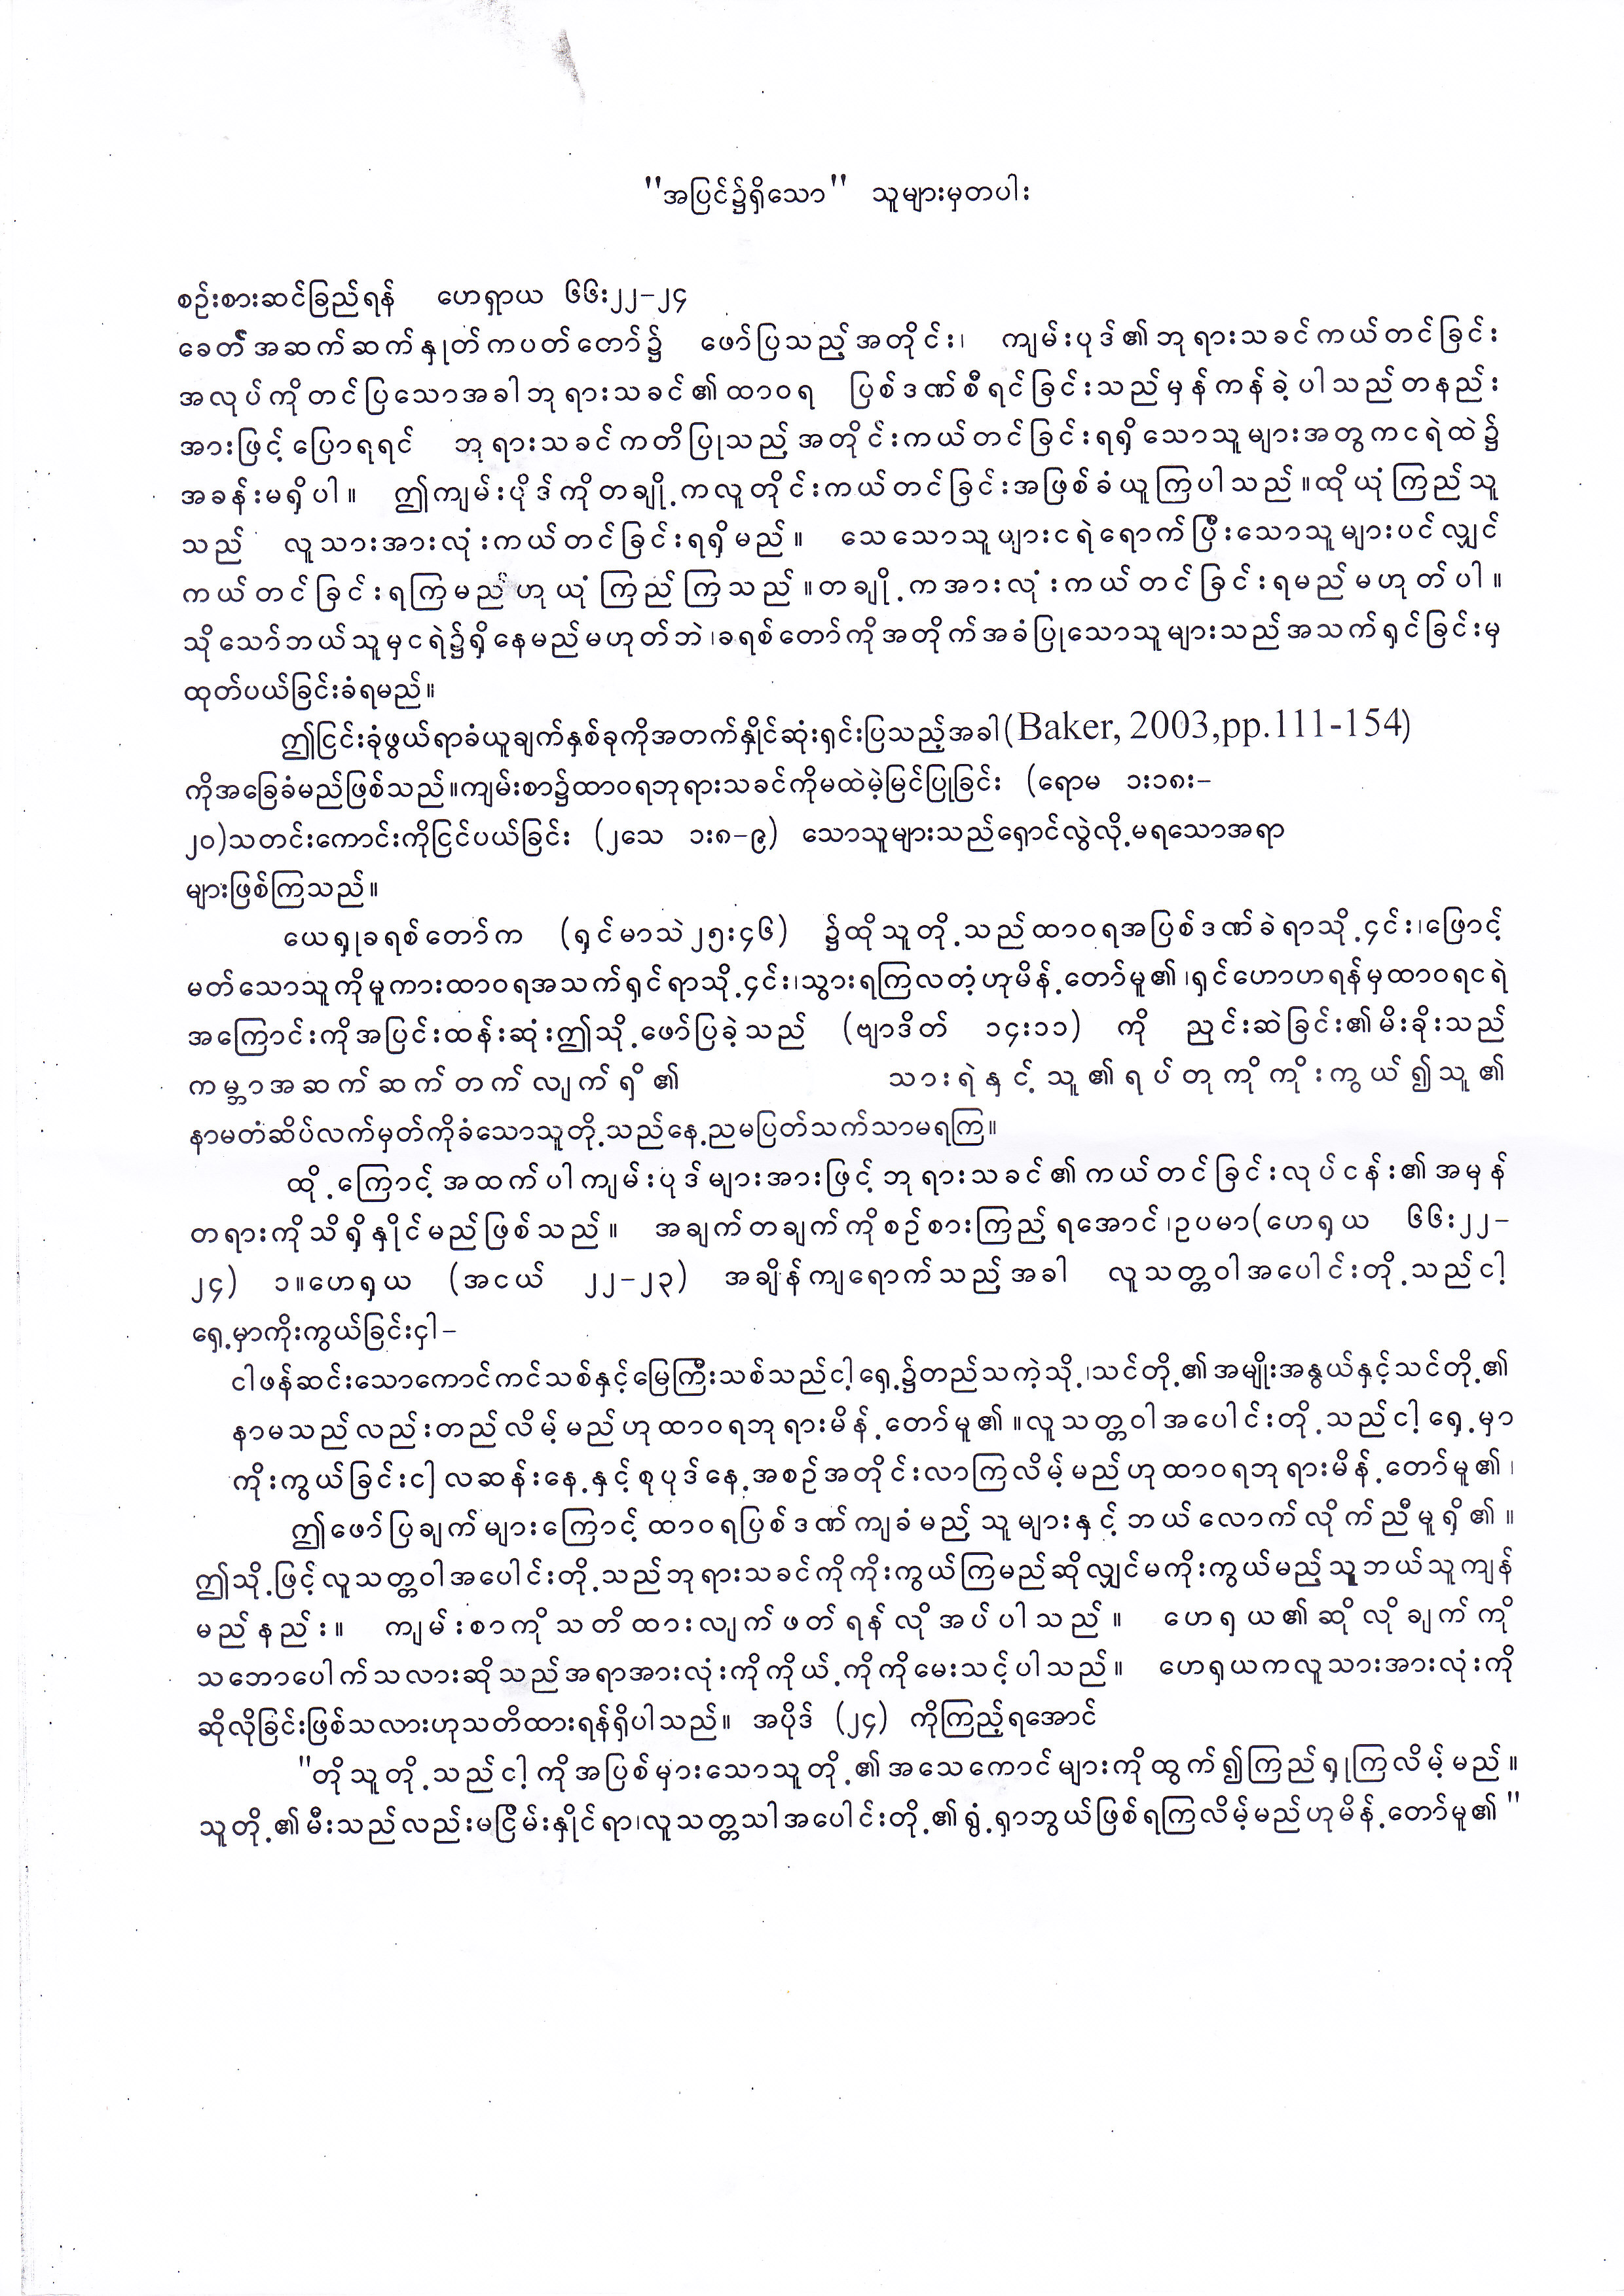 "အပြင်၌ရှိသော" သူများမှတပါး
စဉ်းစားဆင်ခြည်ရန် ဟေရှာယ ၆၆း၂၂-၂၄
ခေတ်အဆက်ဆက်နှုတ်ကပတ်တော်၌ ဖော်ပြသည့်အတိုင်း၊ ကျမ်းပုဒ်၏ဘုရားသခင်ကယ်တင်ခြင်း
အလုပ်ကိုတင်ပြသောအခါဘုရားသခင်၏ထာဝရ ပြစ်ဒဏ်စီရင်ခြင်းသည်မှန်ကန်ခဲ့ပါသည်တနည်း
အားဖြင့်ပြောရရင် ဘုရားသခင်ကတိပြုသည့်အတိုင်းကယ်တင်ခြင်းရရှိသောသူများအတွကငရဲထဲ၌
အခန်းမရှိပါ။ ဤကျမ်းပိုဒ်ကိုတချို့ကလူတိုင်းကယ်တင်ခြင်းအဖြစ်ခံယူကြပါသည်။ထိုယုံကြည်သူ
သည် လူသားအားလုံးကယ်တင်ခြင်းရရှိမည်။ သေသောသူများငရဲရောက်ပြီးသောသူများပင်လျှင်
ကယ်တင်ခြင်းရကြမည်ဟုယုံကြည်ကြသည်။တချို့ကအားလုံးကယ်တင်ခြင်းရမည်မဟုတ်ပါ။
သို့သော်ဘယ်သူမှငရဲ၌ရှိနေမည်မဟုတ်ဘဲ၊ခရစ်တော်ကိုအတိုက်အခံပြုသောသူများသည်အသက်ရှင်ခြင်းမှ
ထုတ်ပယ်ခြင်းခံရမည်။
ဤငြင်းခုံဖွယ်ရာခံယူချက်နှစ်ခုကိုအတက်နှိုင်ဆုံးရှင်းပြသည့်အခါ(Baker, 2003,pp.111-154)
ကိုအခြေခံမည်ဖြစ်သည်။ကျမ်းစာ၌ထာဝရဘုရားသခင်ကိုမထဲမဲ့မြင်ပြုခြင်း (ရောမ ၁း၁၈း-
၂၀)သတင်းကောင်းကိုငြင်ပယ်ခြင်း (၂သေ ၁း၈-၉) သောသူများသည်ရှောင်လွဲလို့မရသောအရာ
များဖြစ်ကြသည်။
ယေရှုခရစ်တော်က (ရှင်မာသဲ၂၅း၄၆) ၌ထိုသူတို့သည်ထာဝရအပြစ်ဒဏ်ခဲရာသို့၄င်း၊ဖြောင့်
မတ်သောသူကိုမူကားထာဝရအသက်ရှင်ရာသို့၄င်း၊သွားရကြလတံ့ဟုမိန့်တော်မူ၏၊ရှင်ဟောဟရန်မှထာဝရငရဲ
အကြောင်းကိုအပြင်းထန်းဆုံးဤသို့ဖော်ပြခဲ့သည် (ဗျာဒိတ် ၁၄း၁၁) ကို ညှင်းဆဲခြင်း၏မိးခိုးသည်
ကမ္ဘာအဆက်ဆက်တက်လျက်ရှိ၏ သားရဲနှင့်သူ၏ရုပ်တုကိုကိုးကွယ်၍သူ၏
နာမတံဆိပ်လက်မှတ်ကိုခံသောသူတို့သည်နေ့ညမပြတ်သက်သာမရကြ။
ထို့ကြောင့်အထက်ပါကျမ်းပုဒ်များအားဖြင့်ဘုရားသခင်၏ကယ်တင်ခြင်းလုပ်ငန်း၏အမှန်
တရားကိုသိရှိနှိုင်မည်ဖြစ်သည်။ အချက်တချက်ကိုစဉ်စားကြည့်ရအောင်၊ဥပမာ(ဟေရှယ ၆၆း၂၂-
၂၄) ၁။ဟေရှယ (အငယ် ၂၂-၂၃) အချိန်ကျရောက်သည့်အခါ လူသတ္တဝါအပေါင်းတို့သည်ငါ့
ရှေ့မှာကိုးကွယ်ခြင်းငှါ-
ငါဖန်ဆင်းသောကောင်ကင်သစ်နှင့်မြေကြီးသစ်သည်ငါ့ရှေ့၌တည်သကဲ့သို့၊သင်တို့၏အမျိုးအနွယ်နှင့်သင်တို့၏
နာမသည်လည်းတည်လိမ့်မည်ဟုထာဝရဘုရားမိန့်တော်မူ၏။လူသတ္တဝါအပေါင်းတို့သည်ငါ့ရှေ့မှာ
ကိုးကွယ်ခြင်းငှါလဆန်းနေ့နှင့်စုပုဒ်နေ့အစဉ်အတိုင်းလာကြလိမ့်မည်ဟုထာဝရဘုရားမိန့်တော်မူ၏၊
ဤဖော်ပြချက်များကြောင့်ထာဝရပြစ်ဒဏ်ကျခံမည့်သူများနှင့်ဘယ်လောက်လိုက်ညီမှုရှိ၏။
ဤသို့ဖြင့်လူသတ္တဝါအပေါင်းတို့သည်ဘုရားသခင်ကိုကိုးကွယ်ကြမည်ဆိုလျှင်မကိုးကွယ်မည့်သူဘယ်သူကျန်
မည်နည်း။ ကျမ်းစာကိုသတိထားလျက်ဖတ်ရန်လိုအပ်ပါသည်။ ဟေရှယ၏ဆိုလိုချက်ကို
သဘောပေါက်သလားဆိုသည်အရာအားလုံးကိုကိုယ့်ကိုကိုမေးသင့်ပါသည်။ ဟေရှယကလူသားအားလုံးကို
ဆိုလိုခြင်းဖြစ်သလားဟုသတိထားရန်ရှိပါသည်။ အပိုဒ် (၂၄) ကိုကြည့်ရအောင်
"တိုသူတို့သည်ငါ့ကိုအပြစ်မှားသောသူတို့၏အသေကောင်များကိုထွက်၍ကြည်ရှုကြလိမ့်မည်။
သူတို့၏မီးသည်လည်းမငြိမ်းနှိုင်ရာ၊လူသတ္တသါအပေါင်းတို့၏ရွံ့ရှာဘွယ်ဖြစ်ရကြလိမ့်မည်ဟုမိန့်တော်မူ၏"